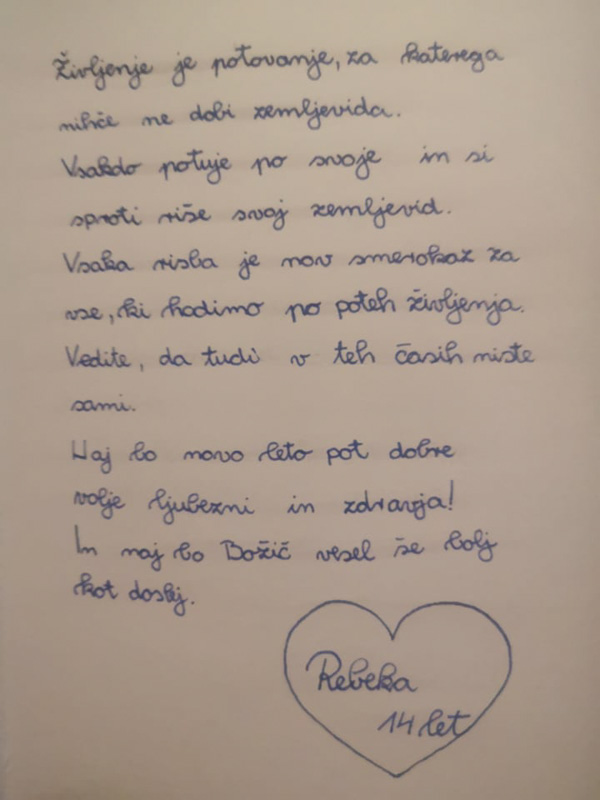 Življenje je potovanje, za katerega
nihče ne dobi zemljevida.
Vsakdo potuje po svoje in si
sproti riše svoj zemljevid.
Vsaka risba je nov smerokaz za
vse, ki hodimo po poteh življenja.
Vedite, da tudi v teh časih niste
sami.
Naj bo novo leto pot dobre
volje ljubezni in zdravja!
In naj bo Božič vesel še bolj
kot doslej.
Rebeka
14 let